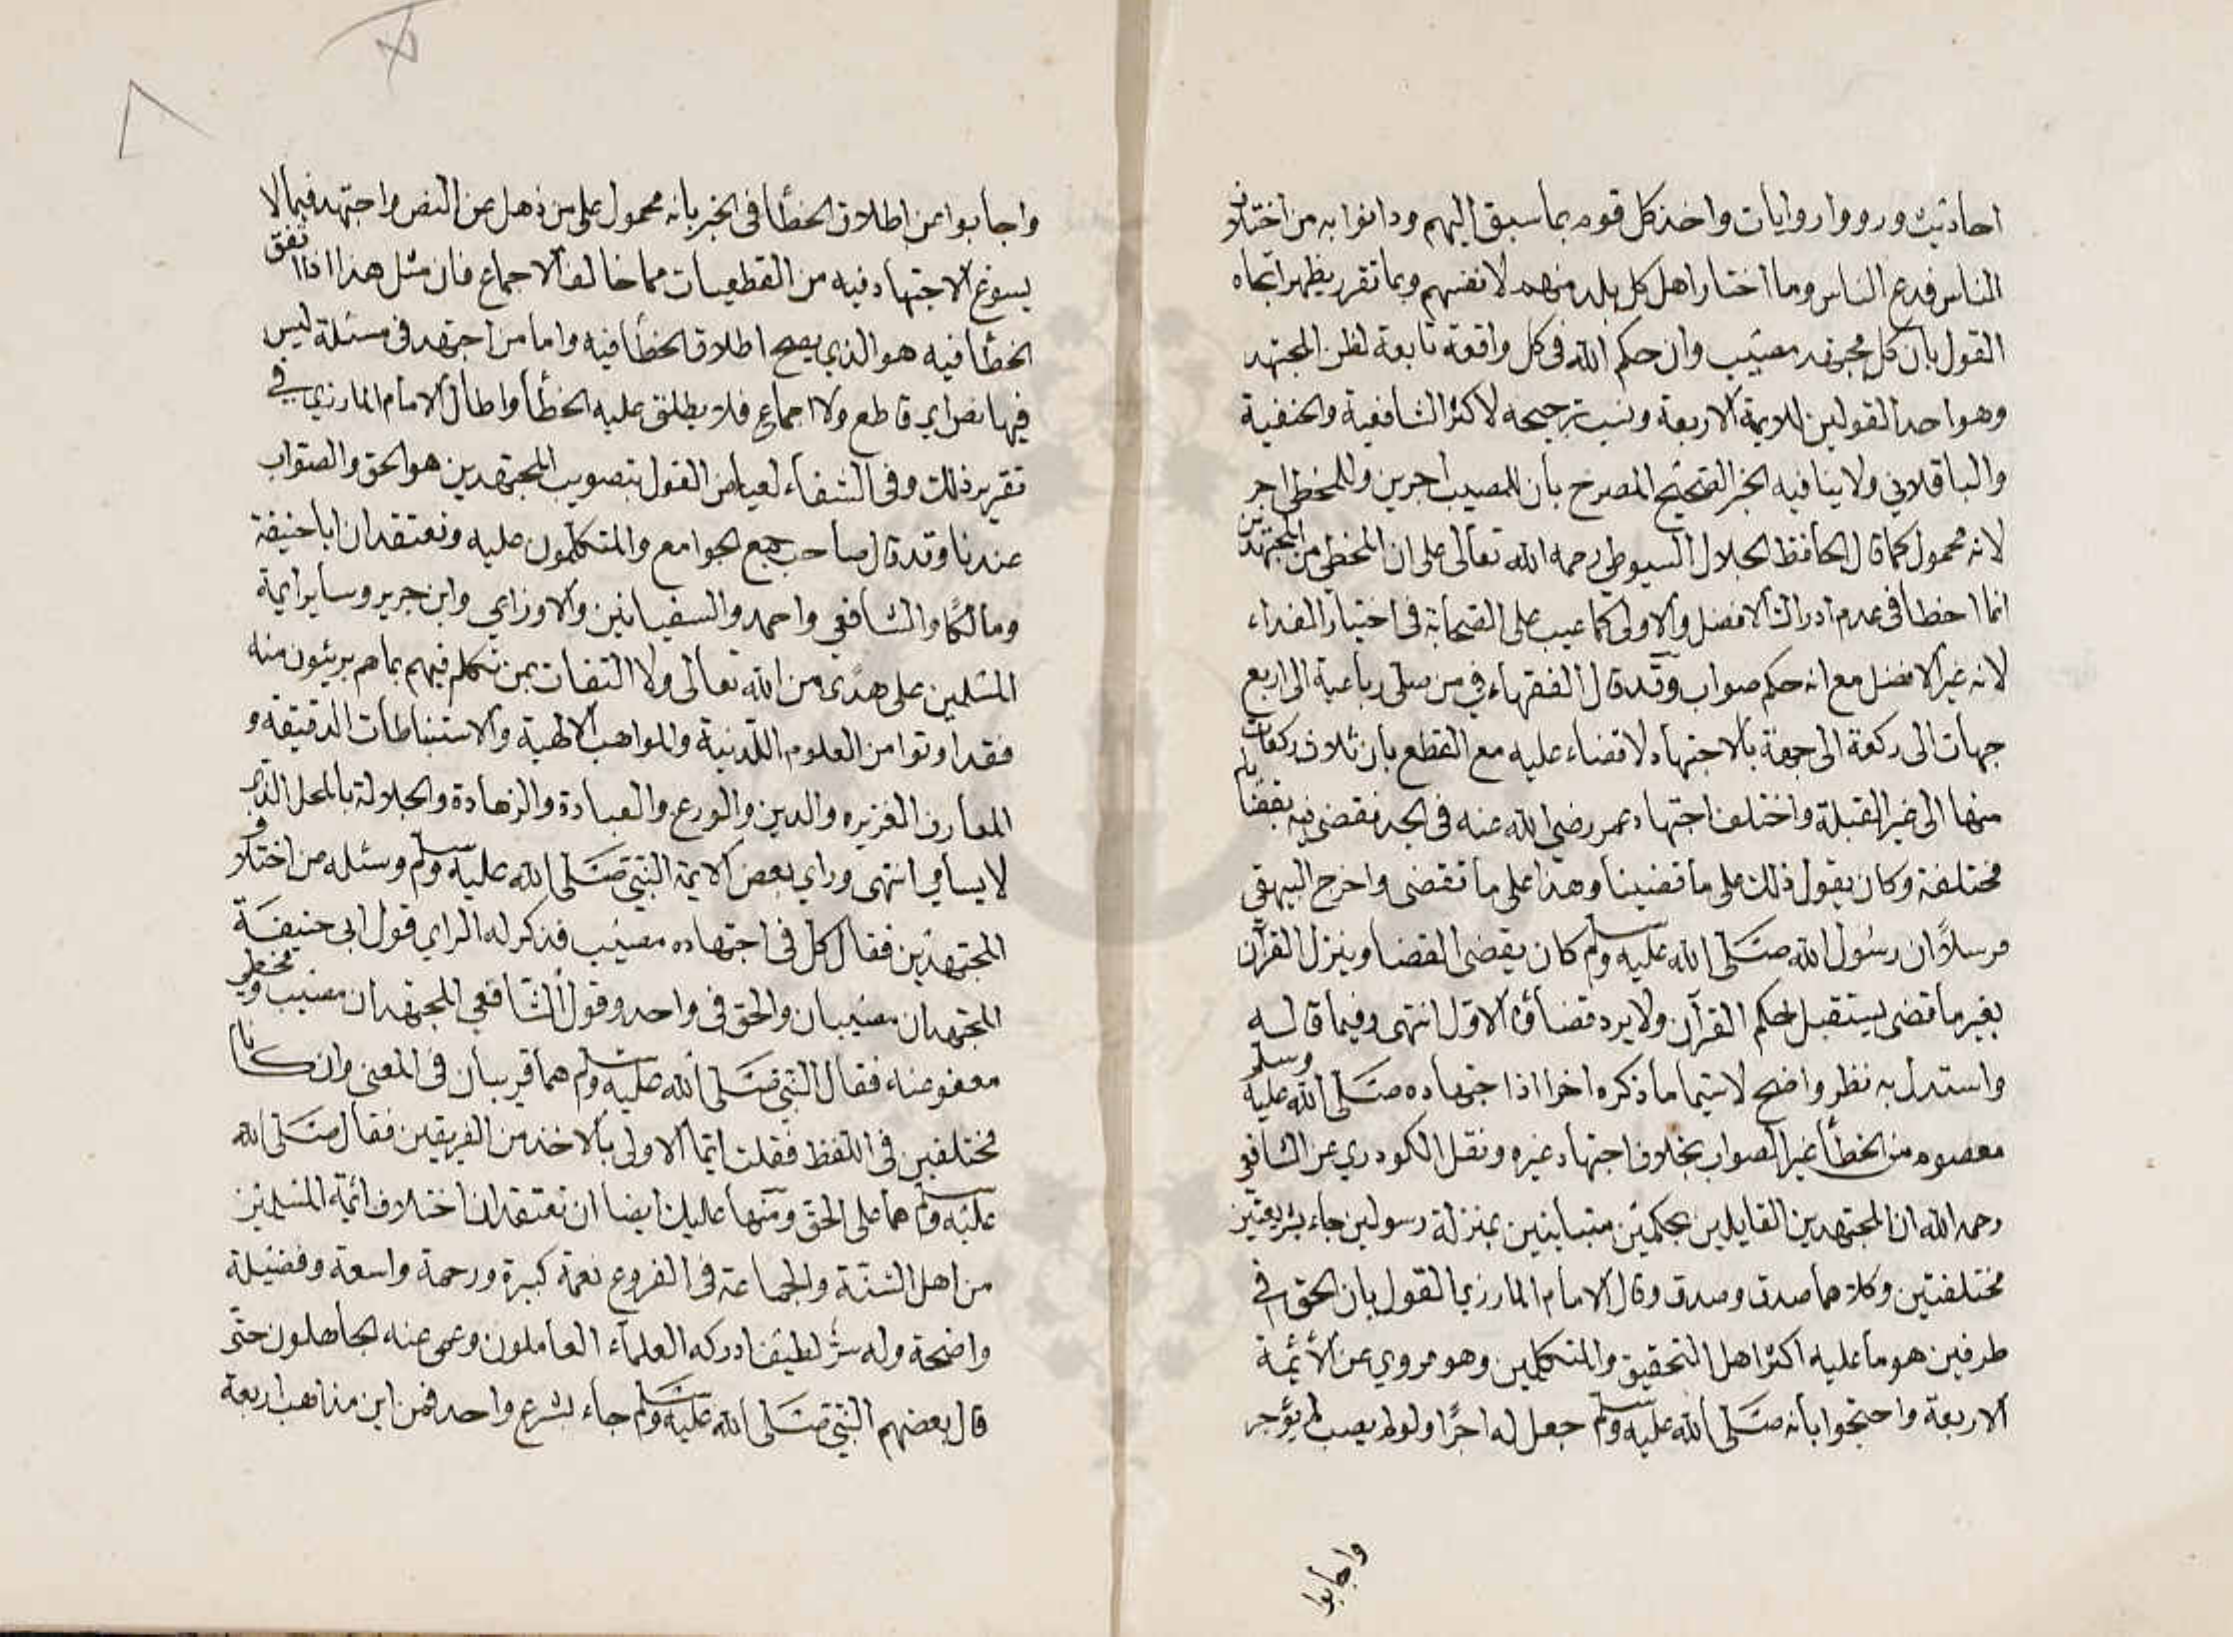 احاديث ورووا روايات واخذ كل قوم بما سبق اليهم ودانوا به من اختلاف
الناس فدع الناس وما اختار اهل كل بلد منهم لانفسهم وبما تقرر يظهر اتجاه
القول بان كل مجتهد مصيب وان حكم الله في كل واقعة تابعة لظن المجتهد
وهو احد القولين للايمة الاربعة ونسب ترجيحه لاكثر الشافعية والحنفية
والباقلاني ولا ينافيه الخبر الصحيح المصرح بان للمصيب اجرين وللمخطى اجر
لانه محمول كما قال الحافظ الجلال السيوطي رحمه الله تعالى على ان المخطي من المجتهدين
انما اخطا في عدم ادراك الافضل والاولى كما عيب على الصحابة في اختيار الفداء
لانه غير الافضل مع انه حكم صواب وقد قال الفقهاء في من صلى رباعية الى اربع
جهات الى ركعة الى جهة بالاجتهاد لا قضاء عليه مع القطع بان ثلاث ركعات
منها الى غير القبلة واختلف اجتهاد عمر رضي الله عنه في الجد فقضى فيه بقضايا
مختلفة وكان يقول ذلك على ما قضينا وهذا على ما تقضى واخرج البيهقي
مرسلاً ان رسول الله صلى الله عليه وسلم كان يقضى القضا وينزل القرآن
بغير ما قضى يستقبل بحكم القرآن ولا يرد قضاؤه الاول انتهى وفيما قاله
واستدل به نظر واضح لا سيما ما ذكره اخرا اذ اجتهاده صلى الله عليه وسلم
معصوم من الخطأ غير الصواب بخلاف اجتهاد غيره ونقل الكودري عن الشافعي
رحمه الله ان المجتهدين القايلين بحكمين متباينين بمنزلة رسولين جاء بشريعتين
مختلفتين وكلاهما صدق وصدق وقال الامام المازري القول بان الحق في
طرفين هو ما عليه اكثر اهل التحقيق والمتكلمين وهو مروي عن الأئمة
الاربعة واحتجوا بانه صلى الله عليه وسلم جعل له اجرًا ولو لم يصب لم يؤجر
واجابوا
واجابوا عن اطلاق الخطأ في الخبر بانه محمول على من ذهل عن النص واجتهد فيما لا
يسوغ الاجتهاد فيه من القطعيات مما خالف الاجماع فان مثل هذا اذا اتفق
الخطأ فيه هو الذي يصح اطلاق الخطأ فيه واما من اجتهد في مسئلة ليس
فيها نص اي قاطع ولا اجماع فلا يطلق عليه الخطأ واطال الامام المازري في
تقرير ذلك وفي الشفاء لعياض القول بتصويب المجتهدين هو الحق والصواب
عندنا وقد قال صاحب جمع الجوامع والمتكلمون عليه ونعتقد ان ابا حنيفة
ومالكًا والشافعي واحمد والسفيانين والاوزاي وابن جرير وساير ايمة
المسلمين على هدًى من الله تعالى ولا التفات بمن تكلم فيهم بما هم بريئون منه
فقد اوتوا من العلوم اللدنية والمواهب الالهية والاستنباطات الدقيقة و
المعارف الغزيره والدين والورع والعبادة والزهادة والجلالة بالمحل الذي
لا يسامي انتهى وراي بعض الايمة النبي صلى الله عليه وسلم وسئله عن اختلاف
المجتهدين فقال كل في اجتهاده مصيب فذكر له الراي قول ابي حنيفة
المجتهدان مصيبان والحق في واحد وقول الشافعي المجتهدان مصيب ومخطي
معفو عنه فقال النبي صلى الله عليه وسلم هما قريبان في المعنى وان كانا
مختلفين في اللفظ فقلت ايما الاولى بالاخذ من الفريقين فقال صلى الله
عليه وسلم هما على الحق ومنها عليك ايضا ان تعتقد ان اختلاف ائمة المسلمين
من اهل السنة والجماعة في الفروع نعمة كبيرة ورحمة واسعة وفضيلة
واضحة وله سر لطيف ادركه العلماء العاملون وعمى عنه الجاهلون حتى
قال بعضهم النبي صلى الله عليه وسلم جاء بشرع واحد فمن اين مذاهب اربعة